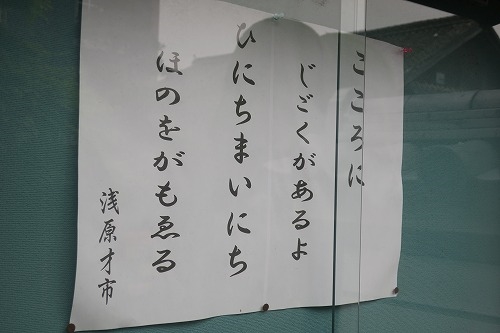 こころに
じごくがあるよ
ひにちまいにち
ほのをがもゑる
浅原才市